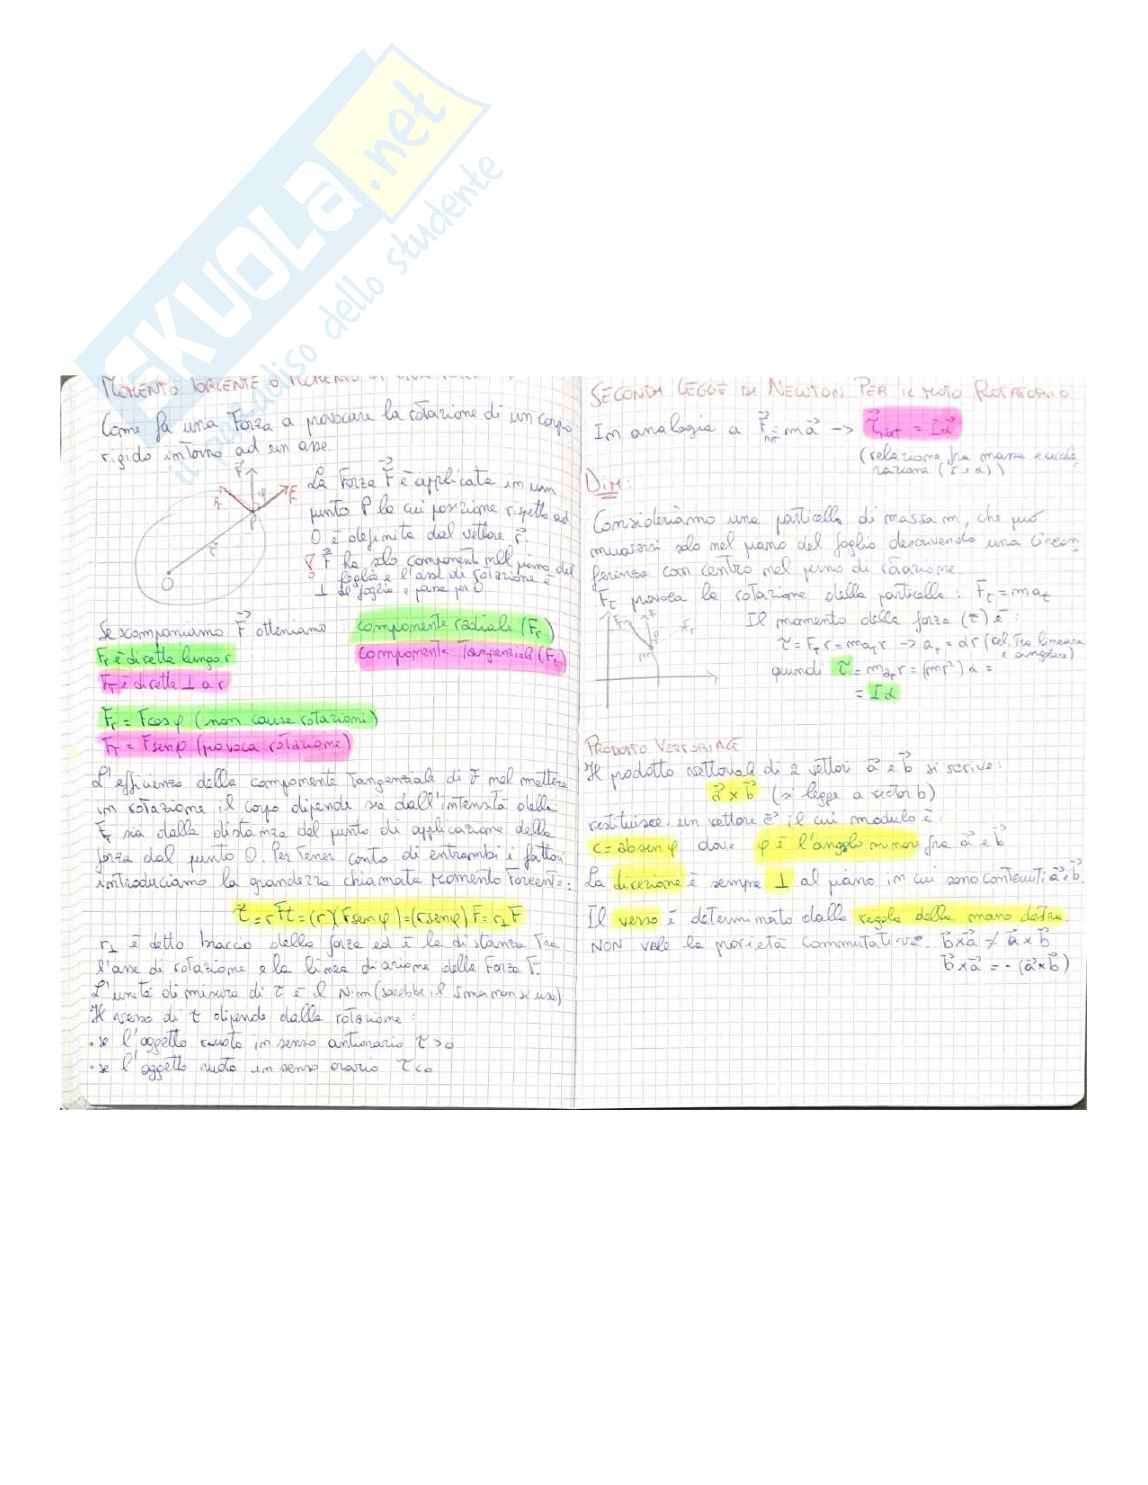 SKUOLA.net
il paradiso dello studente
MOMENTO TORCENTE O MOMENTO DI
Come fa una Forza a provocare la rotazione di un corpo
rigido intorno ad un asse.
La Forza F⃗ è applicata in un
punto P la cui posizione rispetto ad
O è definita dal vettore r⃗.
F⃗ ha solo componenti nel piano del
foglio e l'asse di rotazione è
⊥ al foglio e passa per O
P
r⃗
O
Se scomponiamo F⃗ otteniamo componente radiale (Fr)
Fr è diretta lungo r componente Tangenziale (Ft)
FT è diretta ⊥ a r
Fr = F cos φ (non causa rotazioni)
FT = F sen φ (provoca rotazione)
L'efficienza della componente Tangenziale di F nel mettere
in rotazione il corpo dipende sia dall'intensità della
Ft sia dalla distanza del punto di applicazione della
forza dal punto O. Per tener conto di entrambi i fattori
introduciamo la grandezza chiamata Momento Torcente:
τ = r Ft = (r)(F sen φ) = (r sen φ) F = r⊥ F
r⊥ è detto braccio della forza ed è la distanza tra
l'asse di rotazione e la linea di azione della Forza F.
L'unità di misura di τ è il N·m (sarebbe il J ma non si usa)
Il verso di τ dipende dalla rotazione:
• se l'oggetto ruota in senso antiorario τ>0
• se l'oggetto ruota in senso orario τ<0
SECONDA LEGGE DI NEWTON PER IL MOTO ROTATORIO
In analogia a F⃗net = m a⃗ → τ⃗net = I α⃗
(relazione fra massa e accele
razione (τ e α))
DIM:
Consideriamo una particella di massa m, che può
muoversi solo nel piano del foglio descrivendo una circon
ferenza con centro nel perno di rotazione.
Ft provoca la rotazione della particella: Ft = m at
Il momento della forza (τ) è:
τ = FT r = m aT r → aT = α r (rel. tra lineare
e angolare)
quindi τ = m aT r = (m r²) α =
= I α
PRODOTTO VETTORIALE
Il prodotto vettoriale di 2 vettori a⃗ e b⃗ si scrive:
a⃗ × b⃗ (si legge a vector b)
restituisce un vettore c⃗ il cui modulo è:
c = ab sen φ dove φ è l'angolo minore fra a⃗ e b⃗
La direzione è sempre ⊥ al piano in cui sono contenuti a⃗ e b⃗.
Il verso è determinato dalla regola della mano destra.
NON vale la proprietà commutativa. b⃗ × a⃗ ≠ a⃗ × b⃗
b⃗ × a⃗ = - (a⃗ × b⃗)